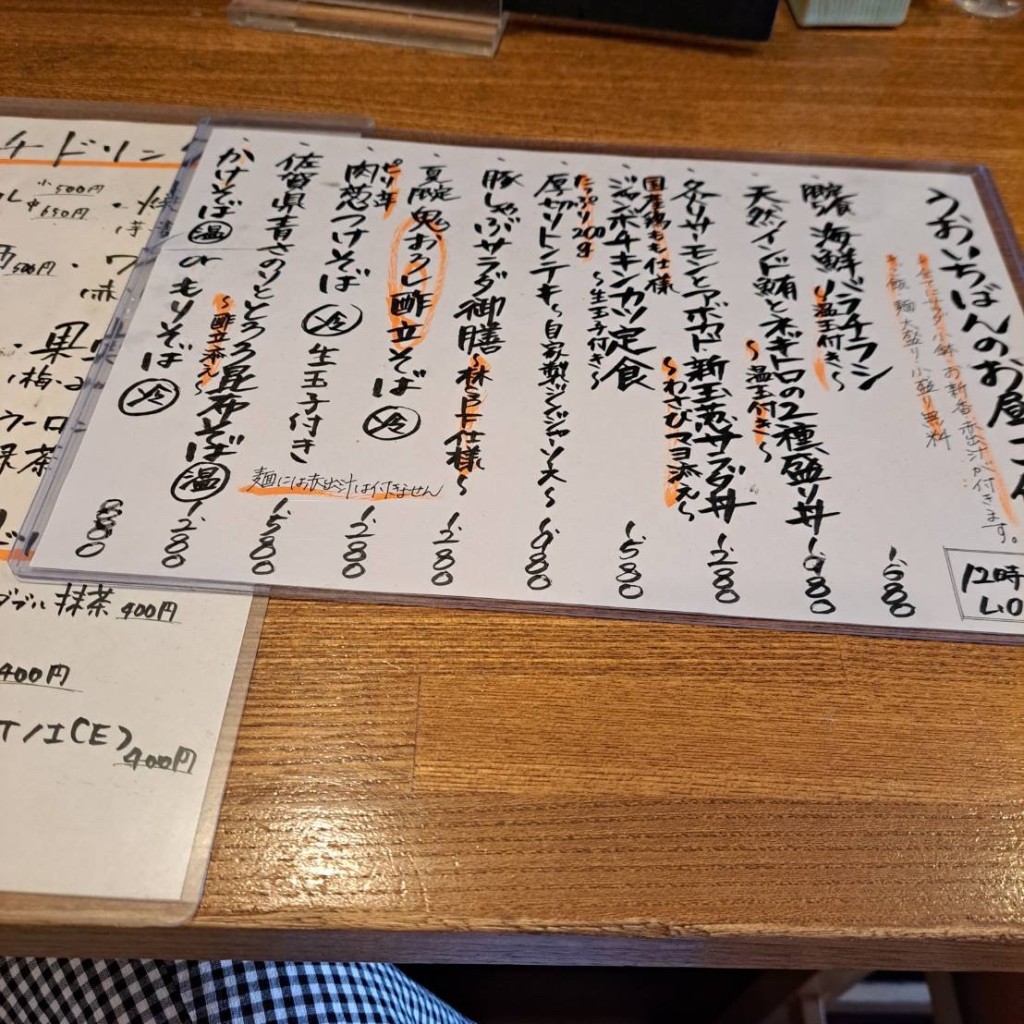 うおいちばんのお昼ごはん
ご飯、麺大盛り小盛り無料
海鮮バラチラシ
～温玉付き～
1580
天然インド鮪とネギトロの2種盛り丼
～温玉付き～
1980
炙りサーモンとアボカド新玉葱サラダ丼
～わさびマヨ添え～
1280
国産鶏もも仕様
ジャンボチキンカツ定食
1580
たっぷり200g
～生玉子付き～
厚切りトンテキ～自家製ジンジャーソース～
1980
豚しゃぶサラダ御膳～林SPF仕様～
1280
夏限定
鬼おろし酢立そば 冷
1280
ピリ辛
肉葱つけそば 冷 生玉子付き
1580
佐賀県青さのりととろろ昆布そば 温
～酢立添え～
1280
かけそば 温 or もりそば 冷
880
麺には赤出汁は付きません
12時
L.O
チドリンク
小500円
中650円
500円
ワ
赤
果
梅
ウーロン
緑茶
ダブル 抹茶 400円
400円
T/I(E)
400円